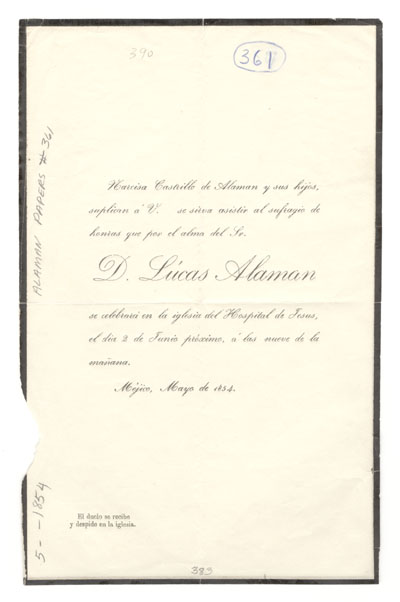 390
361
ALAMAN PAPERS # 361
Narcisa Castrillo de Alaman y sus hijos,
suplican á V. se sirva asistir al sufragio de
honras que por el alma del Sr.
D. Lúcas Alaman
se celebrará en la iglesia del Hospital de Jesus,
el dia 2 de Junio próximo, á las nueve de la
mañana.
Méjico, Mayo de 1854.
El duelo se recibe
y despide en la iglesia.
5- -1854
383